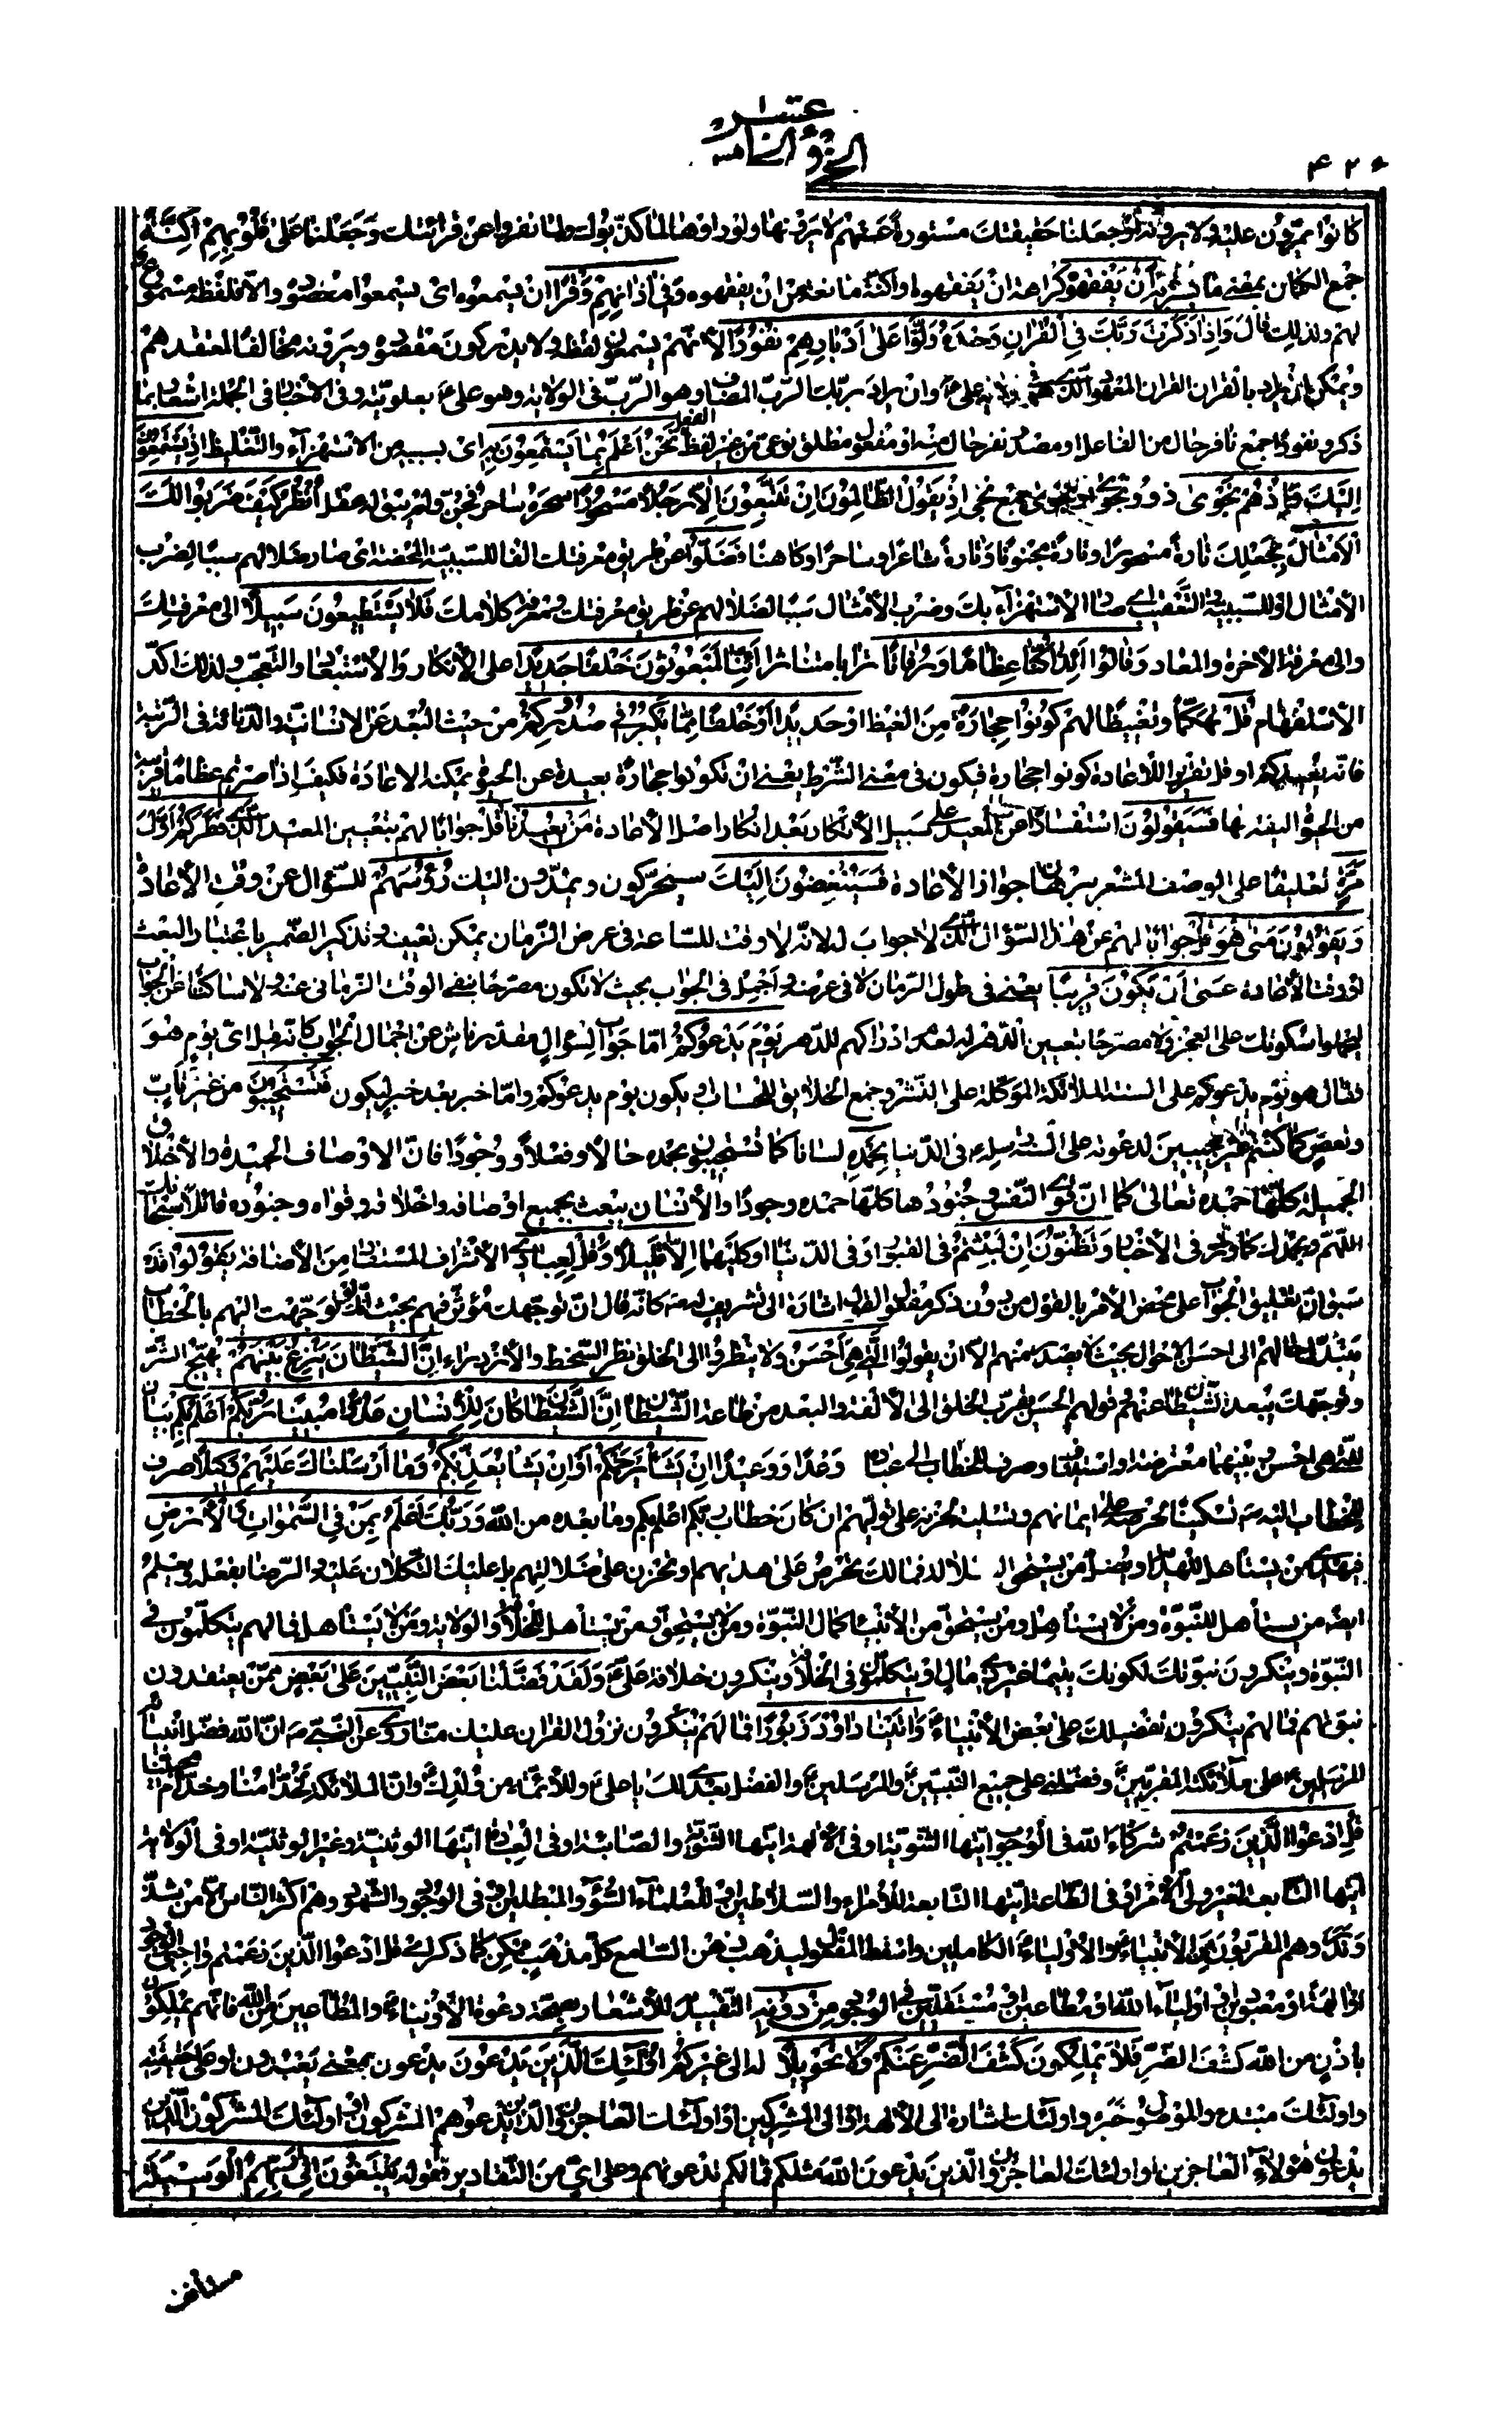 الجزؤ الخامس عشر
۴۲۰
كانوا يمرّون عليه ولا يرونه او جعلنا حقيقتك مستورة عنهم لا يعرفونها ولو رأوها لما كذّبوك ولما نفروا عن قرائتك وَجَعَلْنا عَلى قُلُوبِهِمْ اَكِنَّةً
جمع الكنان بمعنى ما يستر به أَنْ يَفْقَهُوهُ كراهة ان يفقهوه او اكنّة مانعة من ان يفقهوه وَفي آذانِهِمْ وَقْرًا ان يسمعوه اى يسمعوا مقصوده والّا فلفظه مسموع
لهم ولذلك قال وَاِذا ذَكَرْتَ رَبَّكَ فِي الْقُرانِ وَحْدَهُ وَلَّوْا عَلى اَدْبارِهِمْ نُفُورًا لأنّهم يسمعون لفظه ولا يدركون مقصوده ويرونه مخالفًا لمعتقدهم
ويمكن ان يراد بالقرآن القرآن المعهود الّذى ولاية علىّ وان يراد بربّك الرّبّ المضاف وهو الرّبّ فى الولاية وهو علىّ بعلويّته وفى الأخبار فى الجملة اشعار بما
ذكر ونفورًا جمع نافر حال من الفاعل او مصدر نفر حال منه او مفعول مطلق نوعىّ من غير لفظ الفعل نَحْنُ اَعْلَمُ بِما يَسْتَمِعُونَ بِهِ اى بسببه من الاستهزآء والتّغليظ اِذْ يَسْتَمِعُونَ
اِلَيْكَ وَاِذْ هُمْ نَجْوى ذوو نجوى او نجوى جمع نجىّ اِذْ يَقُولُ الظّالِمُونَ اِنْ تَتَّبِعُونَ اِلّا رَجُلًا مَسْحُورًا سحره ساحر فجنّ ولم يبق له عقل اُنْظُرْ كَيْفَ ضَرَبُوا لَكَ
الْاَمْثالَ بجعلك تارة مسحورًا وتارة مجنونًا وتارة شاعرًا وساحرًا وكاهنًا فَضَلُّوا عن طريق معرفتك الفا للسّببيّة المحضة اى صار ضلالهم سببًا لضرب
الأمثال او للسّببيّة والتّعقيب اى صار الاستهزآء بك وضرب الأمثال سببًا لضلالهم عن طريق معرفتك ومعرفة كلامك فَلا يَسْتَطيعُونَ سَبيلًا الى معرفتك
والى معرفة الآخرة والمعاد وَقالُوا اَئِذا كُنّا عِظامًا وَرُفاتًا ترابا متناثرا اَئِنّا لَمَبْعُوثُونَ خَلْقًا جَديدًا على الأنكار والأستبعاد والتّعجّب ولذلك اكّد
الأستفهام قُلْ تهكّمًا وتغييظًا لهم كُونُوا حِجارَةً مِنَ الغيظ اَوْ حَديدًا اَوْ خَلْقًا مِمّا يَكْبُرُ في صُدُورِكُمْ من حيث البُعد عن الانسانيّة والدّنائة فى الرّتبة
فانّه يعيدكم او قل تقريرا للأعادة كونوا حجارة فيكون فى معنى الشّرط يعنى ان تكونوا حجارة بعيدة عن الحيوة يمكنه الاعادة فكيف اذا صرتم عظامًا قريبة
من الحيوة اليفة بها فَسَيَقُولُونَ استفسارًا عن المعيد على سبيل الأنكار بعد انكار اصل الأعادة مَنْ يُعيدُنا قُلْ جوابًا لهم بتعيين المعيد الَّذي فَطَرَكُمْ اَوَّلَ
مَرَّةٍ تعليقًا على الوصف المشعر ببرهان جواز الأعادة فَسَيُنْغِضُونَ اِلَيْكَ سيحرّكون ويمدّون اليك رُؤُسَهُمْ للسّؤال عن وقت الأعادة
وَيَقُولُونَ مَتى هُوَ قُلْ جوابًا لهم عن هذا السّؤال الّذى لا جواب له لانّه لا وقت للسّاعة فى عرض الزّمان يمكن تعيينه وتذكير الضّمير باعتبار البعث
او وقت الأعادة عَسى اَنْ يَكُونَ قَريبًا يعنى فى طول الزّمان لا فى عرضه واجمل فى الجواب بحيث لا تكون مصرّحًا بنفى الوقت الزّمانى عنه ولا ساكتًا عن الجواب
ليحملوا سكوتك على العجز ولا مصرّحًا بتعيين الدّهر له لعدم ادراكهم للدّهر يَوْمَ يَدْعُوكُمْ امّا جواب لسؤال مقدّر ناش عن اجمال الجواب كانّه قيل اىّ يوم هو
فقال هو يوم يدعوكم على السنة الملائكة الموكّلة على النّشر وجمع الخلايق للحساب او يكون يوم يدعوكم وامّا خبر بعد خبر ليكون فَتَسْتَجيبُونَ من غير تأبّ
وتعصّ كما كنتم غير مجيبين لدعوته على السنة رسله فى الدّنيا بِحَمْدِهِ لسانًا كما تستجيبون بحمده حالًا وفعلًا ووجودًا فانّ الاوصاف الحميدة والأخلاق
الجميلة كلّها حمده تعالى كما انّ قوى النّفس وجنودها كلّها حمده وجودًا والأنسان يبعث بجميع اوصافه واخلاقه وقواه وجنوده قائلًا سبحانك
اللّهمّ وبحمدك كما ورد فى الأخبار وَتَظُنُّونَ اِنْ لَبِثْتُمْ فى القبور او فى الدّنيا او كليهما اِلّا قَليلًا وَقُلْ لِعِبادي الأشراف المستفاد من الأضافة يَقُولُوا قد
سبق انّ تعليق الجواب على محض الأمر بالقول من دون ذكر مفعول القول اشارة الى تشريف له ص كانّه قال انّ توجّهك مؤثّر فيهم بحيث انّك لو توجّهت اليهم بالخطاب
يتبدّل احوالهم الى احسن الاحوال بحيث لا يصدر منهم الّا ان يقولوا الَّتي هِيَ اَحْسَنُ ولا ينظروا الى الخلق نظر السّخط والأزدراء اِنَّ الشَّيْطانَ يَنْزَغُ بَيْنَهُمْ يهيّج الشّرّ
وتوجّهك يبعد الشّيطان عنهم وقولهم الحسن يقرّب الخلق الى الألفة والبعد من طاعة الشّيطان اِنَّ الشَّيْطانَ كانَ لِلْاِنْسانِ عَدُوًّا مُبينًا رَبُّكُمْ اَعْلَمُ بِكُمْ بيان
للّتى هى احسن وما بينهما معترضة او استيناف وصرف للخطاب الى عباده وعدًا ووعيدًا اِنْ يَشَأْ يَرْحَمْكُمْ اَوْ اِنْ يَشَأْ يُعَذِّبْكُمْ وَما اَرْسَلْناكَ عَلَيْهِمْ وَكيلًا صرف
للخطاب اليه ص تسكينًا لحرصه على ايمانهم وتسلية لحزنه على تولّيهم ان كان خطاب ربّكم اعلم بكم وما بعده من الله وَرَبُّكَ اَعْلَمُ بِمَنْ فِي السَّمواتِ وَالْاَرْضِ
فيهدى من يستأهل للهداية ويضلّ من يستحقّ الضلالة فمالك تحرص على هدايتهم او تحزن على ضلالتهم بل عليك التّكلان عليه والرّضا بفعله ويعلم
ايضا من يستأهل للنّبوّة ومن لا يستأهل ومن يستحقّ من الأنبياء كمال النّبوّة ومن لا يستحقّ ومن يستأهل للخلافة والولاية ومن لا يستأهل فما لهم يتكلّمون فى
النّبوّة وينكرون نبوّتك لكونك يتيمًا غير ذى مال او يتكلّمون فى الخلافة وينكرون خلافة علىّ وَلَقَدْ فَضَّلْنا بَعْضَ النَّبِيّينَ عَلى بَعْضٍ ممّن يعتقدون
نبوّتهم فما لهم ينكرون تفضيلك على بعض الأنبياء وَآتَيْنا داوُدَ زَبُورًا فما لهم ينكرون نزول القرآن عليك ممّا روى عن النّبىّ ص انّ الله فضّل انبيائه
المرسلين على ملائكته المقرّبين وفضّلنى على جميع النّبيّين والمرسلين والفضل بعدى لك يا علىّ وللأئمّة من ولدك وانّ الملائكة لخدّامنا وخدّام محبّينا
قُلِ ادْعُوا الَّذينَ زَعَمْتُمْ شركاء الله فى الوجوب ايّتها الثّنويّة او فى الألهة ايّتها الثّنويّة والصّابئة او فى العبادة ايّتها الوثنيّة وغير الوثنيّة او فى الولاية
ايّتها التّابعة لغير ولىّ الأمر او فى الطّاعة ايّتها التّابعة للأمراء والسّلاطين او للعلماء السّوء والمبطلين او فى الوجود والشّهود وهم اكثر النّاس الّا من شذّ
وندّ وهم المقرّبون من الأنبياء والأولياء الكاملين واسقط المفعول ليذهب ذهن السّامع كلّ مذهب ممكن كما ذكر اى قل ادعوا الّذين زعمتم واجبى الوجود
او آلهة او معبودين او اولياء الله او مطاعين او مستقلّين فى الوجود مِنْ دُونِهِ التّقييد للأشعار بصحّة دعوة الأولياء والمطاعين من الله فانّهم يملكون
باذن من الله كشف الضّرّ فَلا يَمْلِكُونَ كَشْفَ الضُّرِّ عَنْكُمْ وَلا تَحْويلًا له الى غيركم اُولئِكَ الَّذينَ يَدْعُونَ يدعون بمعنى يعبدون او على حقيقته
واولئك مبتدء والموصول خبره واولئك اشارة الى الألهة او الى المشركين او اولئك العاجزون والّذين يدعوهم المشركون او اولئك المشركون الّذين
يدعون هؤلاء العاجزين او اولئك العاجزون والّذين يدعون الله مثلكم فما لكم تدعونهم وعلى اىّ من التّقادير فقوله يَبْتَغُونَ اِلى رَبِّهِمُ الْوَسيلَةَ